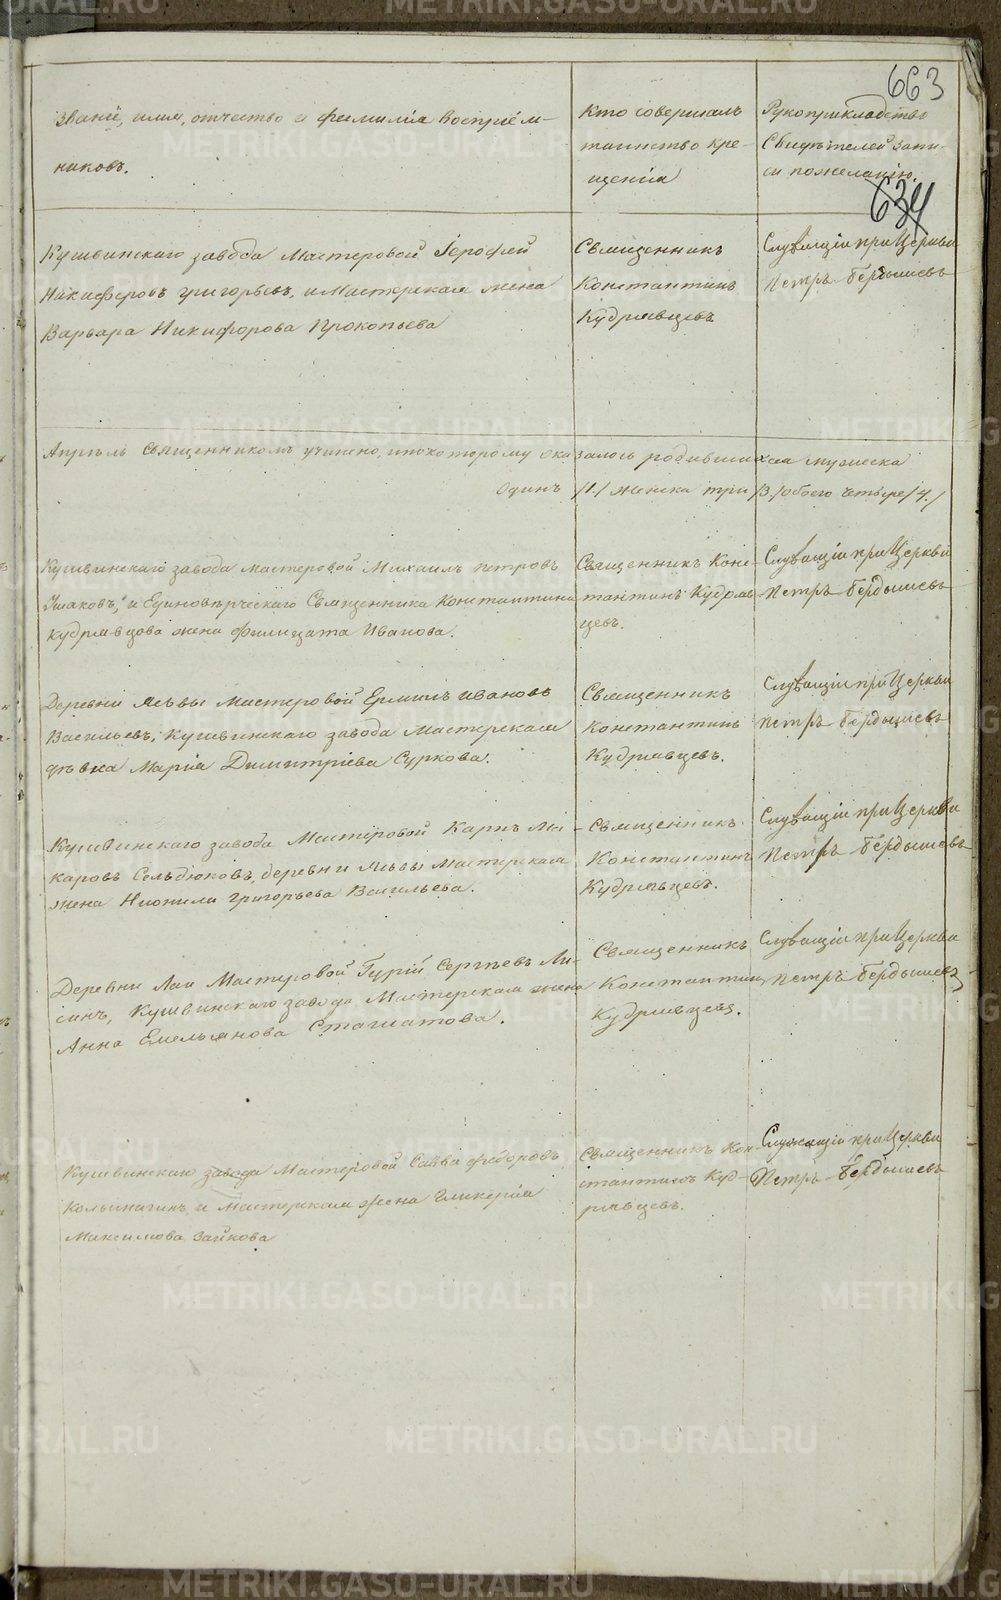 663
Званіе, имя, отчество и фамилія воспріем-
никовъ.
Кто совершалъ
таинство кре-
щенія
Рукоприкладство
Свидѣтелей запи-
си по желанію.
634
Кушвинскаго завода Мастеровой Іерофей
Никифоровъ Григорьевъ, и Мастерская жена
Варвара Никифорова Прокопьева
Священникъ
Константинъ
Кудрявцевъ
Служащій при Церкви
Петръ Бердышевъ
Апрѣль священникомъ учинено, и по которому оказалось родившихся мужеска
одинъ /1./ женска три /3./ обоего четыре /4./
Кушвинскаго завода мастеровой Михаилъ Петровъ
Ушаковъ, и Единовѣрческаго Священника Константина
Кудрявцова жена Филицата Иванова.
Священникъ Конс-
тантинъ Кудряв-
цевъ.
Служащій при Церкви
Петръ Бердышевъ
Деревни Лывы Мастеровой Ермилъ Ивановъ
Васильевъ, Кушвинскаго завода Мастерская
дѣвка Марія Димитріева Суркова.
Священникъ
Константинъ
Кудрявцевъ.
Служащій при Церкви
Петръ Бердышевъ
Кушвинскаго завода Мастеровой Карпъ Ма-
каровъ Сельдюковъ, деревни Лывы Мастерская
жена Нионила Григорьева Васильева.
Священникъ
Константинъ
Кудрявцевъ.
Служащій при Церкви
Петръ Бердышевъ
Деревни Лаи Мастеровой Гурій Сергѣевъ Ли-
синъ, Кушвинскаго завода Мастерская жена
Анна Емельянова Стахматова.
Священникъ
Константинъ
Кудрявцевъ.
Служащій при Церкви
Петръ Бердышевъ
Кушвинскаго завода Мастеровой Савва Федоровъ
и Мастерская жена Гликерія
Максимова Зайкова
Священникъ Кон-
стантинъ Куд-
рявцевъ.
Служащій при Церкви
Петръ Бердышевъ
METRIKI.GASO-URAL.RU